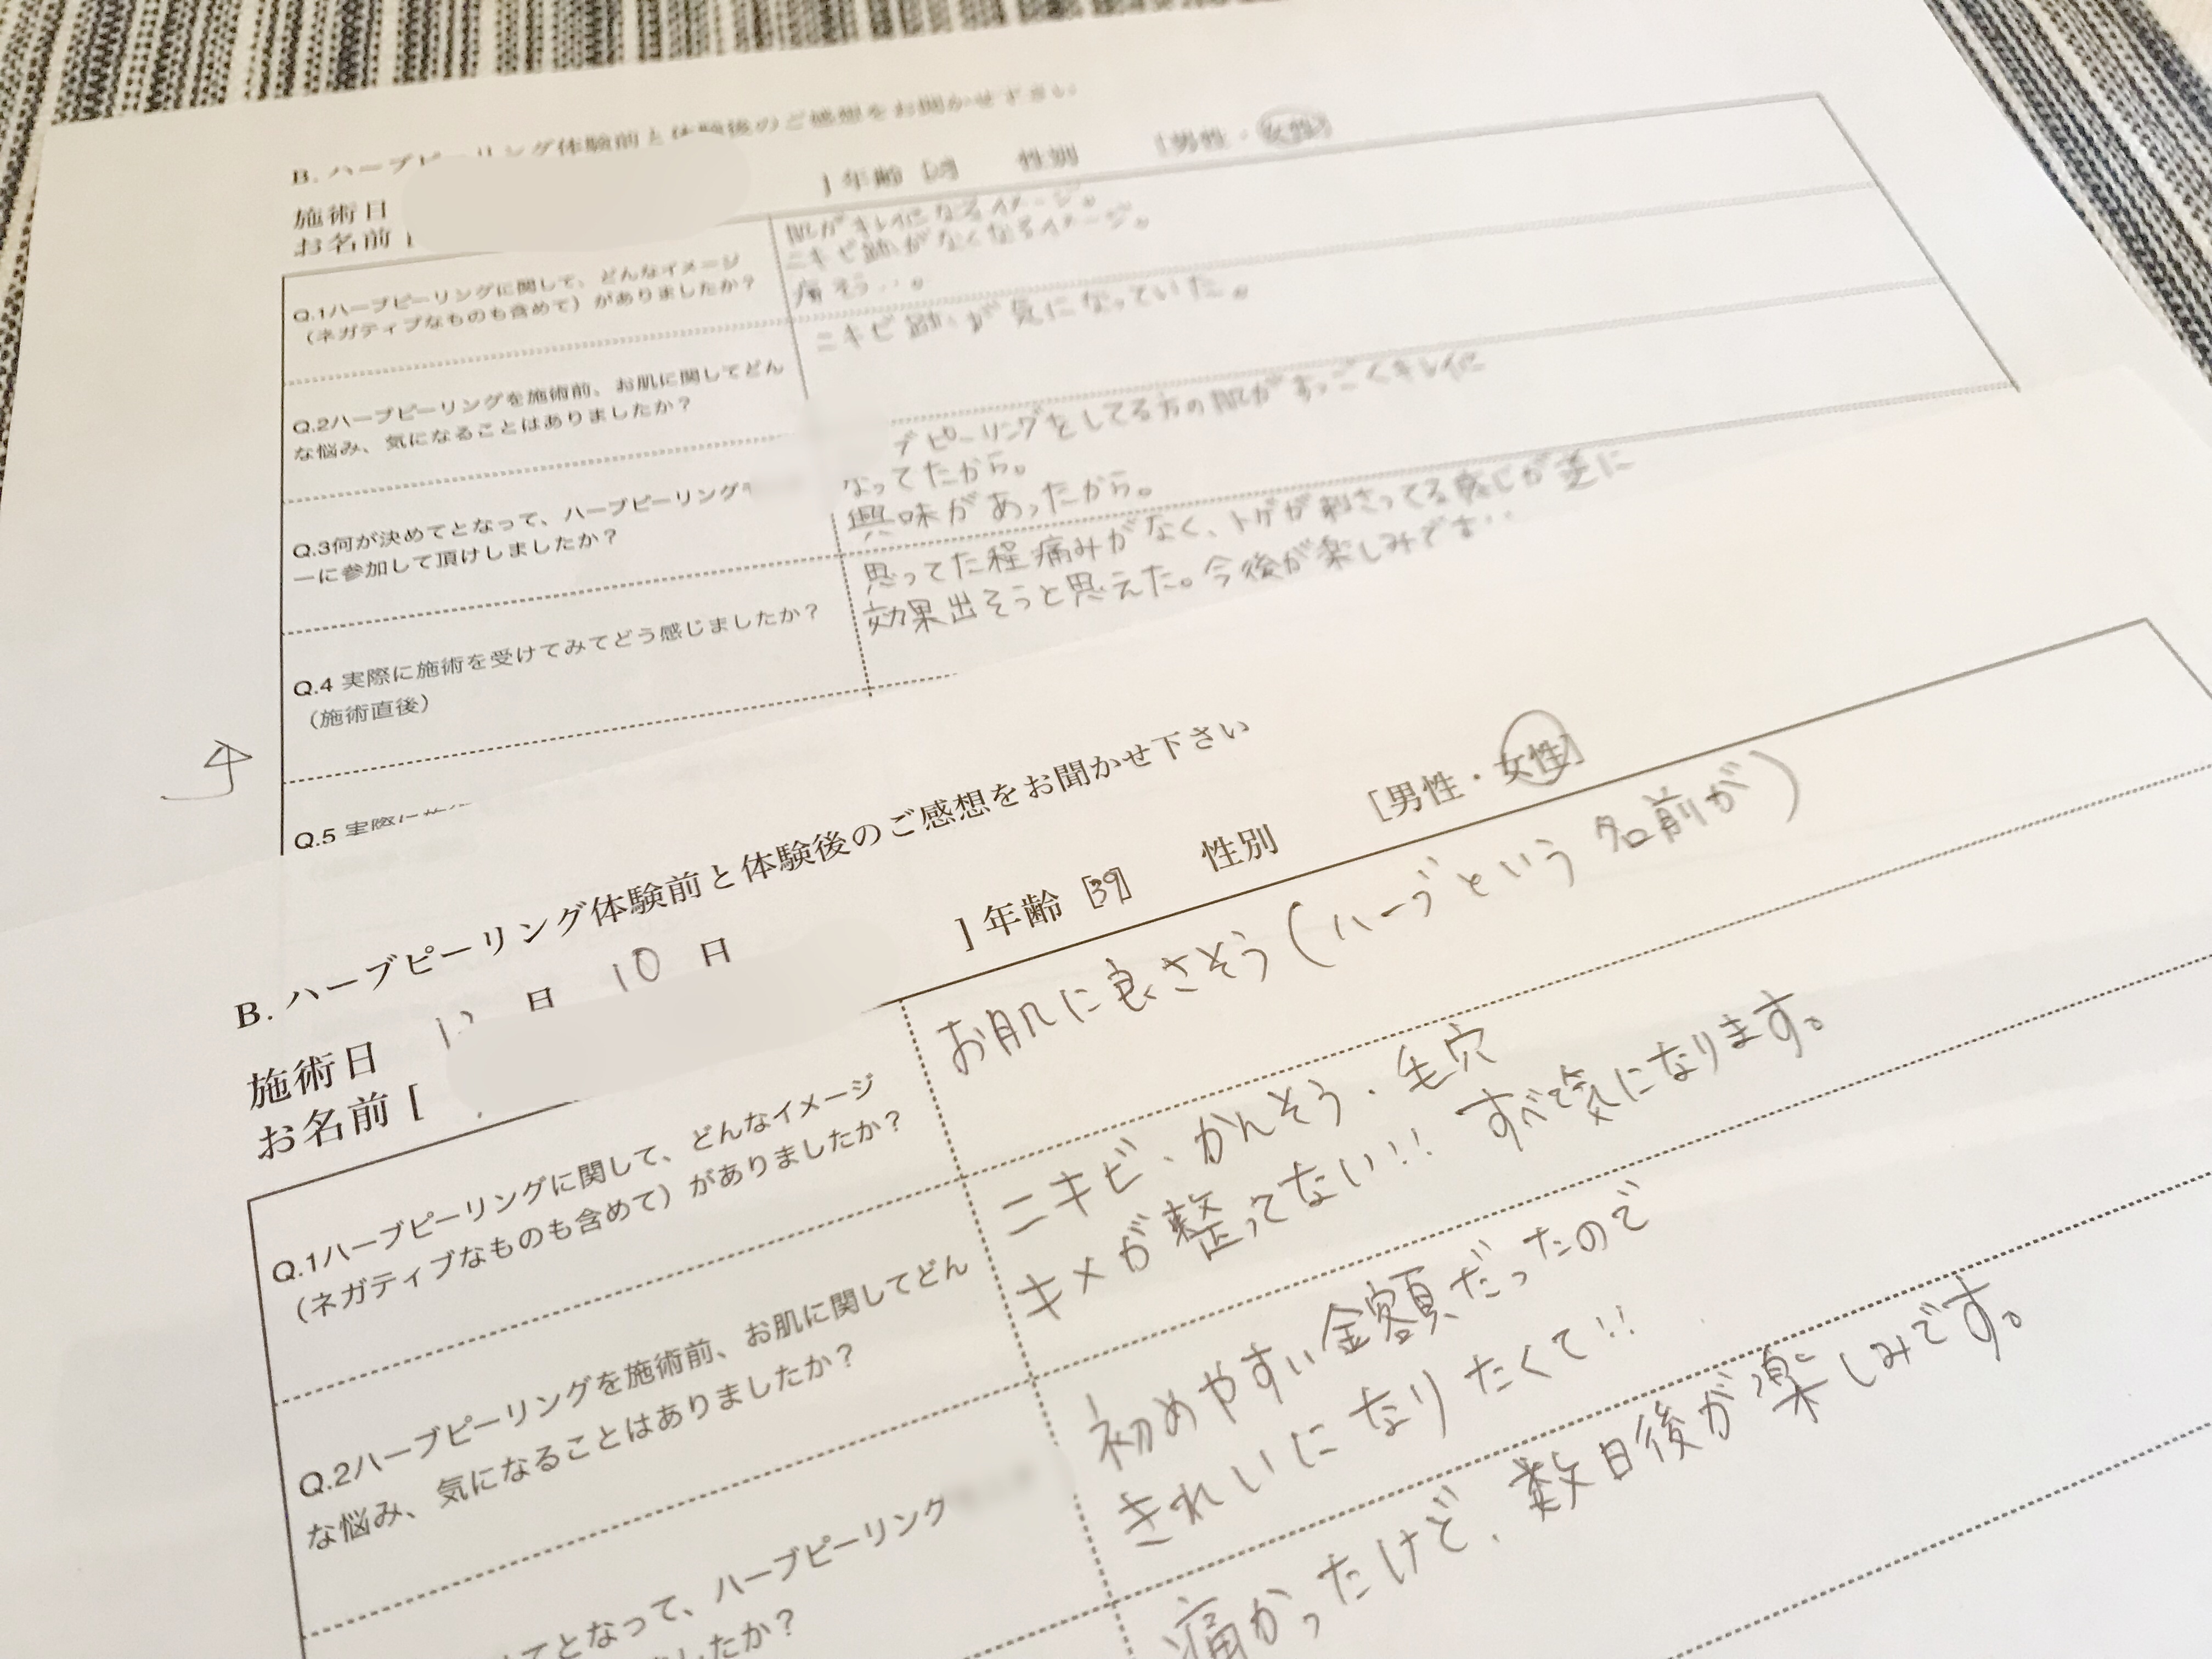 B. ハーブピーリング体験前と体験後のご感想をお聞かせ下さい
施術日
お名前 [ ] 年齢 性別 [男性・女性]
Q.1ハーブピーリングに関して、どんなイメージ
（ネガティブなものも含めて）がありましたか？
肌がキレイになるイメージ。
ニキビ跡がなくなるイメージ。
痛そう…。
Q.2ハーブピーリングを施術前、お肌に関してどん
な悩み、気になることはありましたか？
ニキビ跡が気になっていた。
Q.3何が決めてとなって、ハーブピーリング
ーに参加して頂けしましたか？
でピーリングをしてる方の肌がすっごくキレイに
なってたから。
興味があったから。
Q.4 実際に施術を受けてみてどう感じましたか？
（施術直後）
思ってた程痛みがなく、トゲが刺さってる感じが逆に
効果出そうと思えた。今後が楽しみです…
Q.5 実際に
B. ハーブピーリング体験前と体験後のご感想をお聞かせ下さい
施術日 日 10 日
お名前 [ ] 年齢 [39] 性別 [男性・女性]
Q.1ハーブピーリングに関して、どんなイメージ
（ネガティブなものも含めて）がありましたか？
お肌に良さそう（ハーブという名前が）
Q.2ハーブピーリングを施術前、お肌に関してどん
な悩み、気になることはありましたか？
ニキビ、かんそう・毛穴
キメが整ってない!! すべて気になります。
てとなって、ハーブピーリング
したか？
初めやすい金額だったので
きれいになりたくて!!
痛かったけど、数日後が楽しみです。